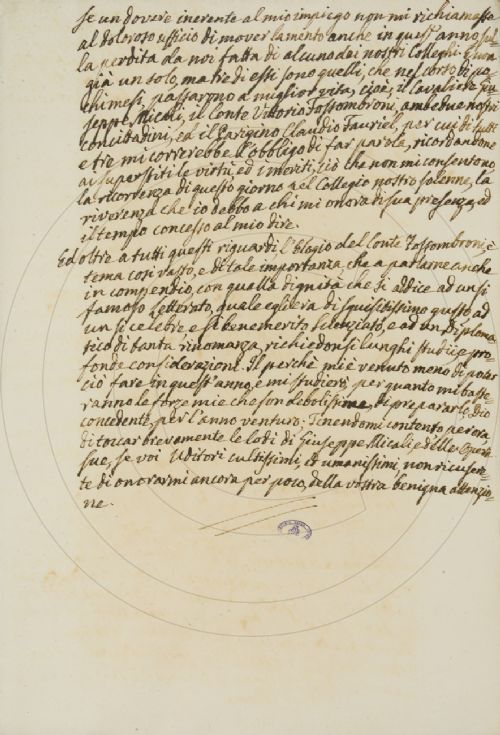 se un dovere inerente al mio impiego non mi richiamasse
al doloroso ufficio di mover lamento anche in quest'anno sul-
la perdita da noi fatta di alcuno dei nostri Colleghi. E non
già un solo, ma tre di essi sono quelli, che nel corso di po-
chi mesi, passarono a miglior vita; cioè, il Cavaliere Giu-
seppe Micali, il Conte Vittorio Fossombroni, ambedue nostri
Concittadini, ed il Parigino Claudio Fauriel, per cui di tutti
e tre mi correrebbe l'obbligo di far parola, ricordandone
ai superstiti le virtù, ed i meriti; ciò che non mi consentono
la ricorrenza di questo giorno nel Collegio nostro solenne, la
riverenza che io debbo a chi mi onora di sua presenza, ed
il tempo concesso al mio dire.
Ed oltre a tutti questi riguardi, l'Elogio del Conte Fossombroni, è
tema così vasto, e di tale importanza, che a parlarne anche
in compendio, con quella dignità che si addice ad un sì
famoso Letterato, quale egli era di squisitissimo gusto, ad
un sì celebre e sì benemerito Scienziato, e ad un Diploma-
tico di tanta rinomanza, richiedonsi lunghi studii e pro-
fonde considerazioni. Il perchè mi è venuto meno di poter
ciò fare in quest'anno, e mi studierò, per quanto mi baste-
ranno le forze mie che son debolissime, di prepararlo, Dio
concedente, per l'anno venturo; Tenendomi contento per ora,
di toccar brevemente le lodi di Giuseppe Micali e delle Opere
sue, se voi Uditori cultissimi, ed umanissimi non ricusere-
te di onorarmi ancora per poco, della vostra benigna attenzio-
ne.